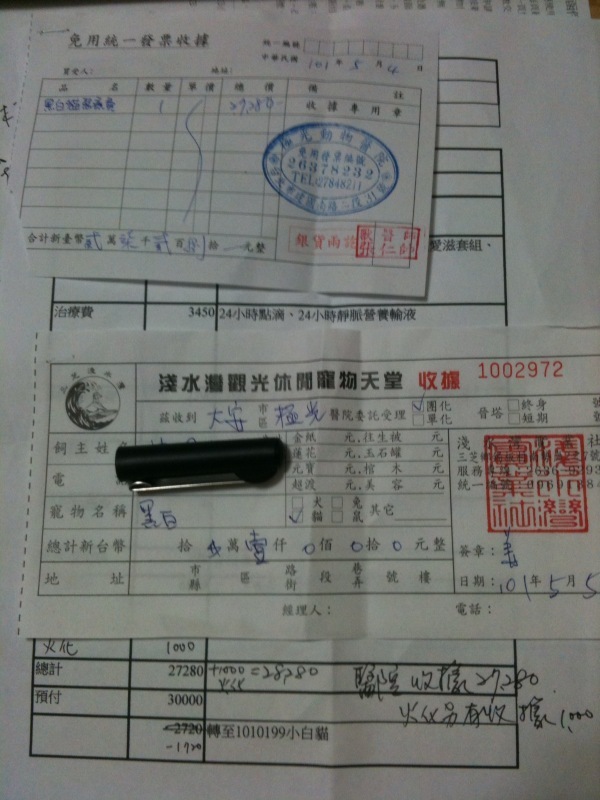 免用統一發票收據
統一編號
中華民國 101 年 5 月 4 日
買受人: 地址:
品名 數量 單價 總價 備註
黑白貓醫療費 1 27,280 收據專用章
動物醫院
免用發票編號
26378232
TEL:27848211
合計新臺幣 貳 萬 柒 千 貳 百 捌 拾 元整
銀貨兩訖
愛滋套組、
治療費 3450 24小時點滴、24小時靜脈營養輸液
淺水灣觀光休閒寵物天堂 收據 1002972
茲收到 大安 市區 極光 醫院委託受理 團化 單化 晉塔 終身 短期 號
飼主姓名 金紙 元,往生被 元
蓮花 元,玉石罐 元
電 元寶 元,棺木 元
超渡 元,美容 元
寵物名稱 黑白 犬 兔 貓 鼠 其它
總計新台幣 拾 萬 壹 仟 0 佰 0 拾 0 元整
地址 市縣 區 路街 段 巷弄 號 樓
簽章:
日期: 101年5月5
經理人: 電話:
火化 1000
總計 27280 +1000=28,280
火化
醫院收據27,280
預付 30000
火化另有收據1,000
-2720 轉至1010199小白貓
-1720